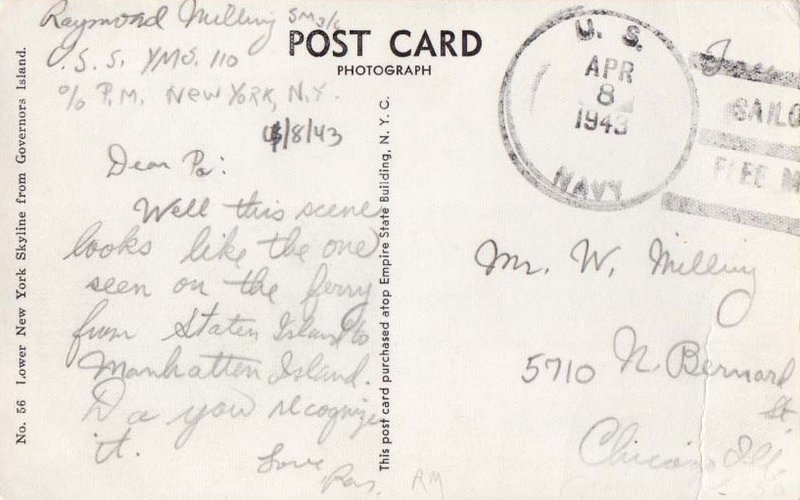 Raymond Milling SM3/c
U.S.S. YMS. 110
% P.M. New York, N.Y.
4/8/43
Dear Pa:
Well this scene
looks like the one
seen on the ferry
from Staten Island to
Manhatten Island.
Do you recognize
it.
Love
Ray.
RM
POST CARD
PHOTOGRAPH
No. 56 Lower New York Skyline from Governors Island.
This post card purchased atop Empire State Building, N. Y. C.
U. S.
APR
8
1943
NAVY
Free
SAILO
FREE M
Mr. W. Milling
5710 N. Bernard
St.
Chicago Ill.